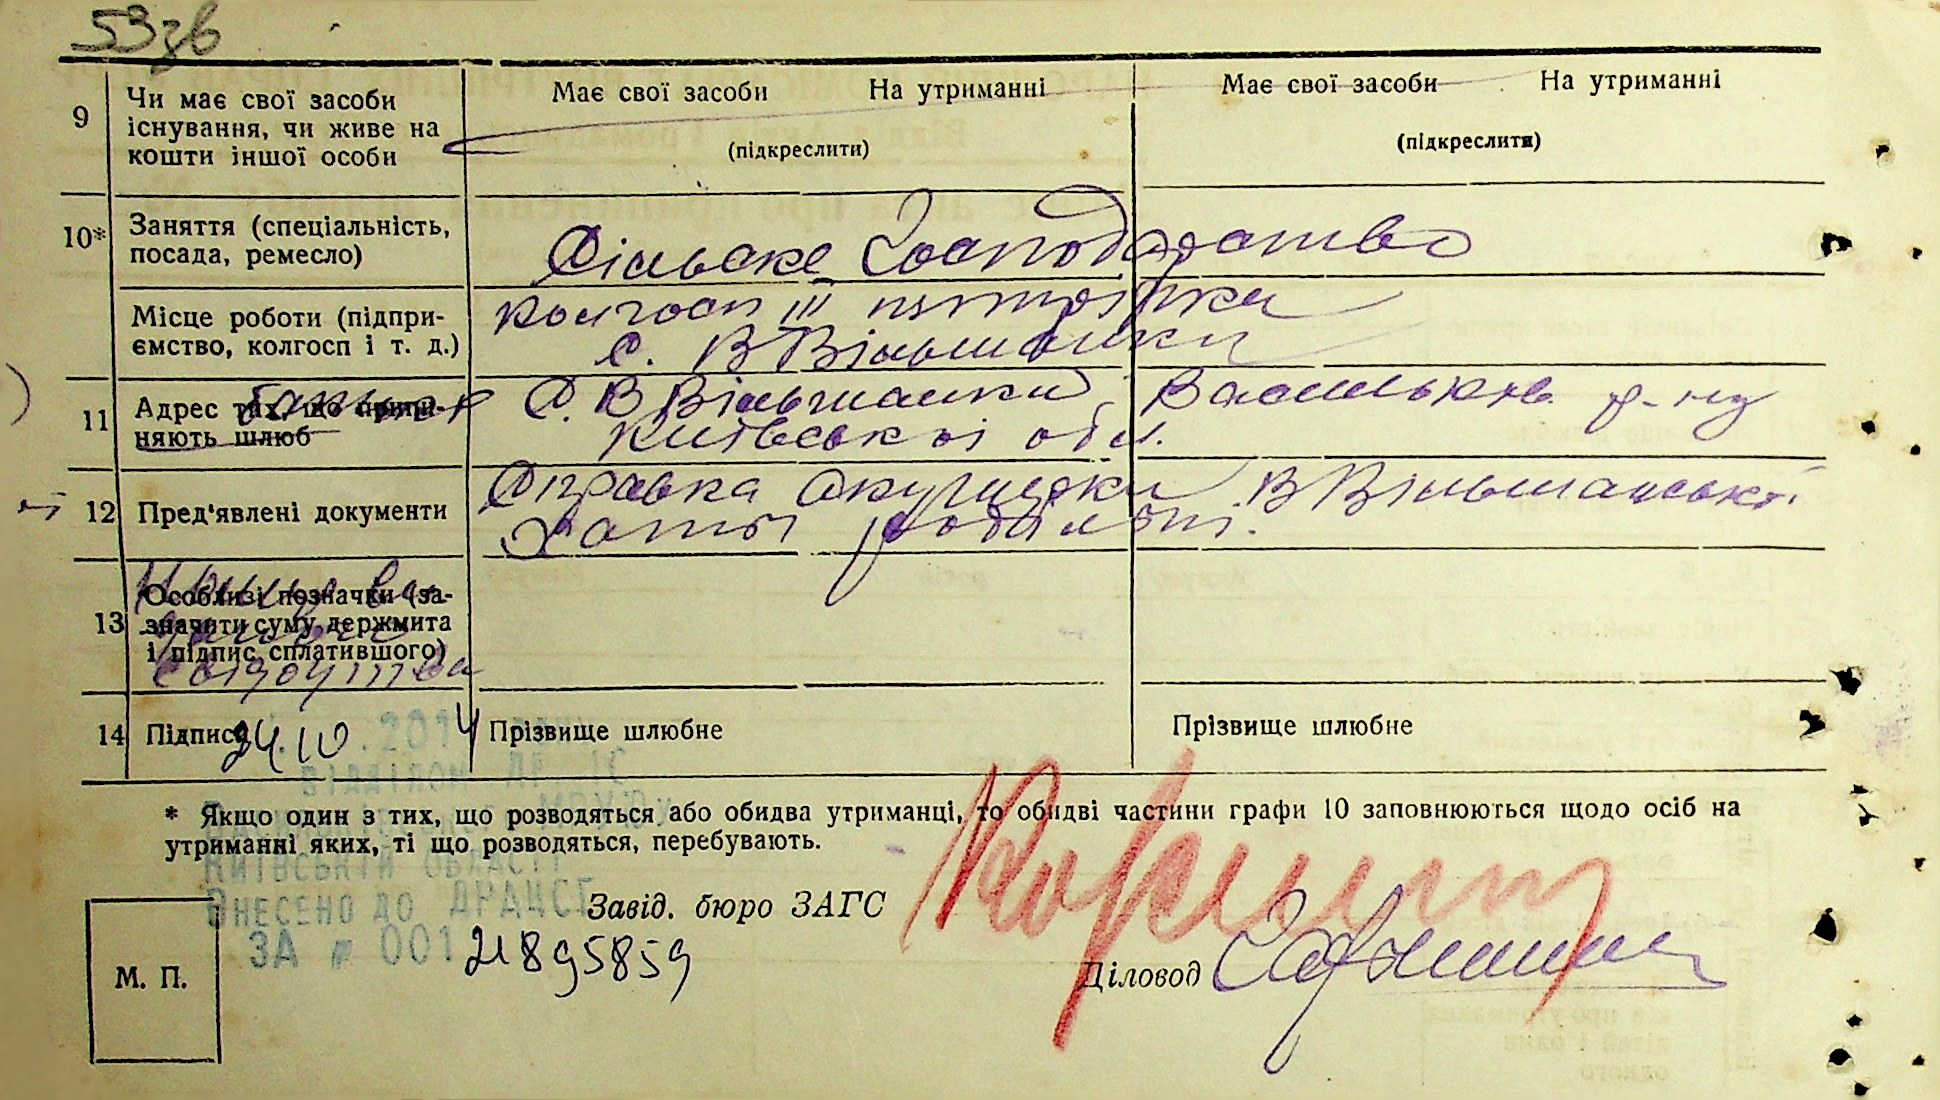 53зв
9 Чи має свої засоби існування, чи живе на кошти іншої особи
Має свої засоби На утриманні
(підкреслити)
Має свої засоби На утриманні
(підкреслити)
10* Заняття (спеціальність, посада, ремесло)
Сільске Господарство
Місце роботи (підпри-
ємство, колгосп і т. д.)
колгосп III пятирічка
с. В Вільшанки
11 Адрес тих, що припи-
няють шлюб
батьків
С. В Вільшанки, Васильків. р-ну
Київської обл.
12 Пред'явлені документи
Справка Акушерки В Вільшанської
Хати родільні.
13 Особливі позначки (за-
значити суму держмита
і підпис сплатившого)
14 Підпис
24.10 .2014
Прізвище шлюбне
Прізвище шлюбне
ВІДДІЛОМ ДР ЦС
* Якщо один з тих, що розводяться або обидва утриманці, то обидві частини графи 10 заповнюються щодо осіб на
утриманні яких, ті що розводяться, перебувають.
КИЇВСЬКІЙ ОБЛАСТІ
ВНЕСЕНО ДО ДРАЦСГ
ЗА № 001 21895859
Завід. бюро ЗАГС
Діловод
М. П.